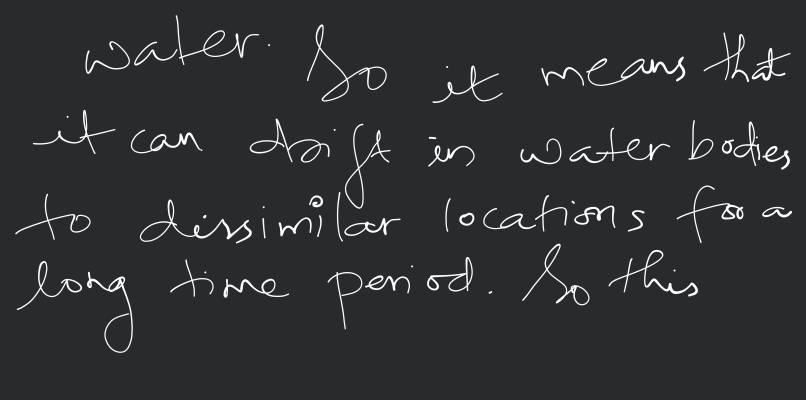 water. So it means that
it can drift in water bodies
to dissimilar locations for a
long time period. So this